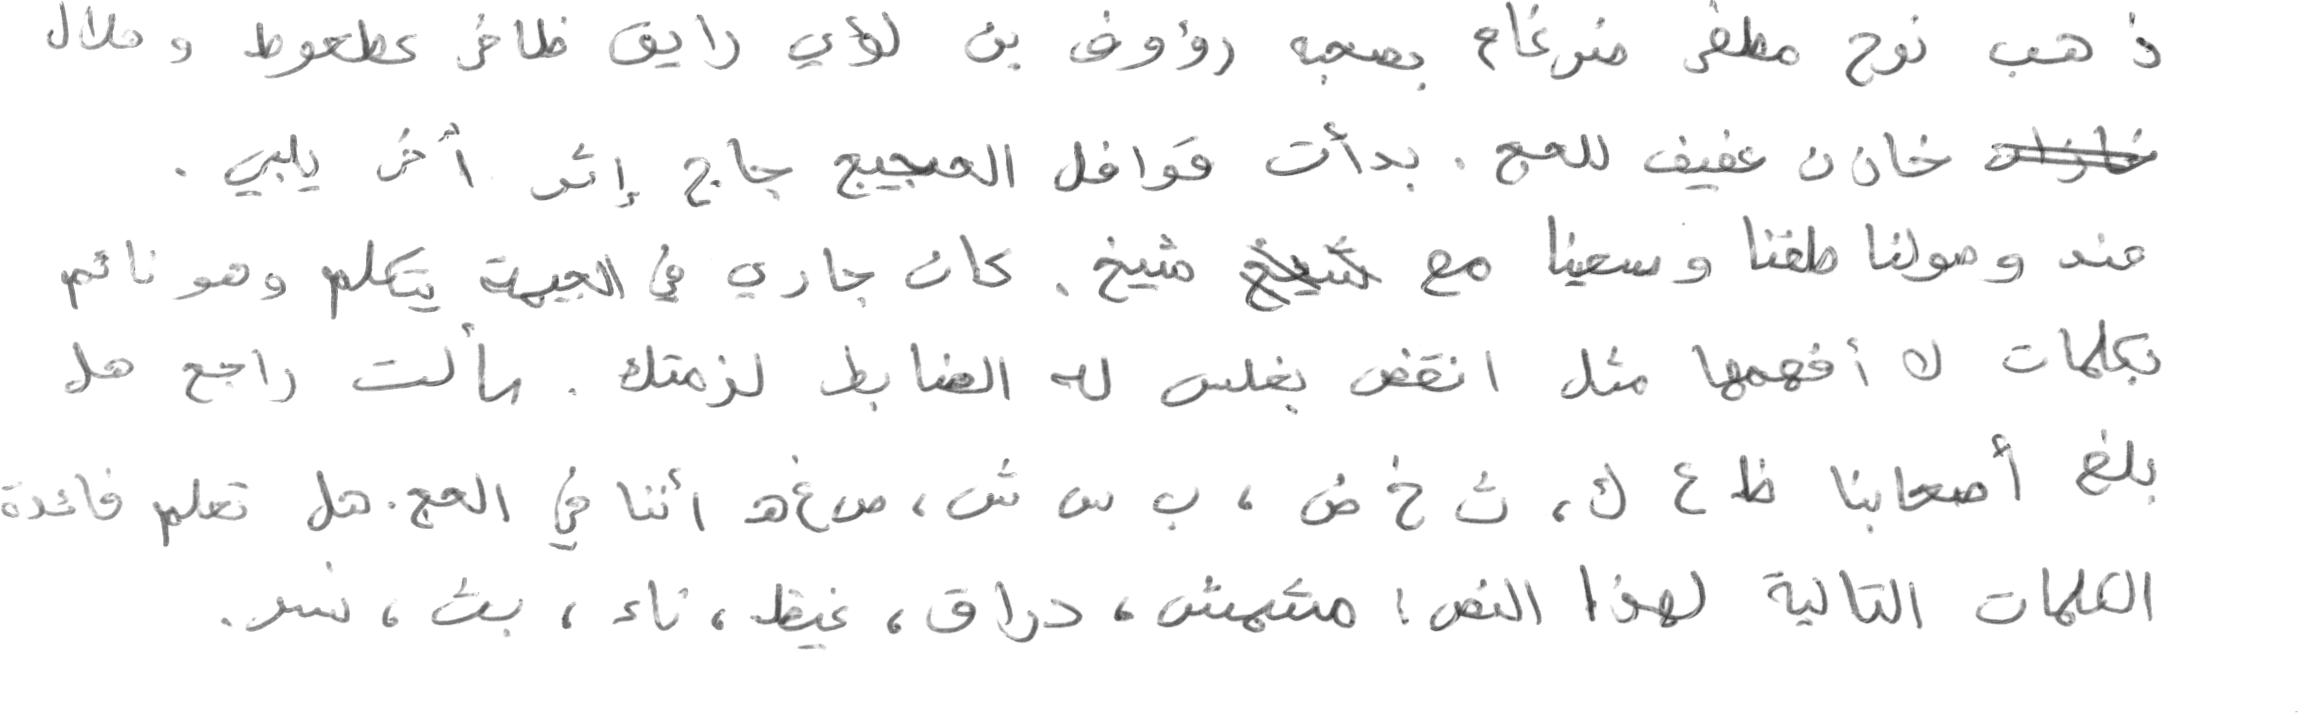 ذهب نوح مظفر ضرغام بصحبه رؤوف بن لؤي رايق ظافر عطعوط و هلال
خازن عفيف للحج . بدأت قوافل الحجيج حاج إثر أخر يلبي .
عند وصولنا طفنا وسعينا مع شيخ . كان جاري في الخيمة يتكلم وهو نائم
بكلمات لا أفهمها مثل انقض بغلس له الضابط لزمتك . سألت راجح هل
بلغ أصحابنا ظ ع ك، ث خ ض ، ب س ش، ص غ هـ أننا في الحج. هل تعلم فائدة
الكلمات التالية لهذا النص؛ مشمش، دراق، غيظ، ناء، بث، نسر.